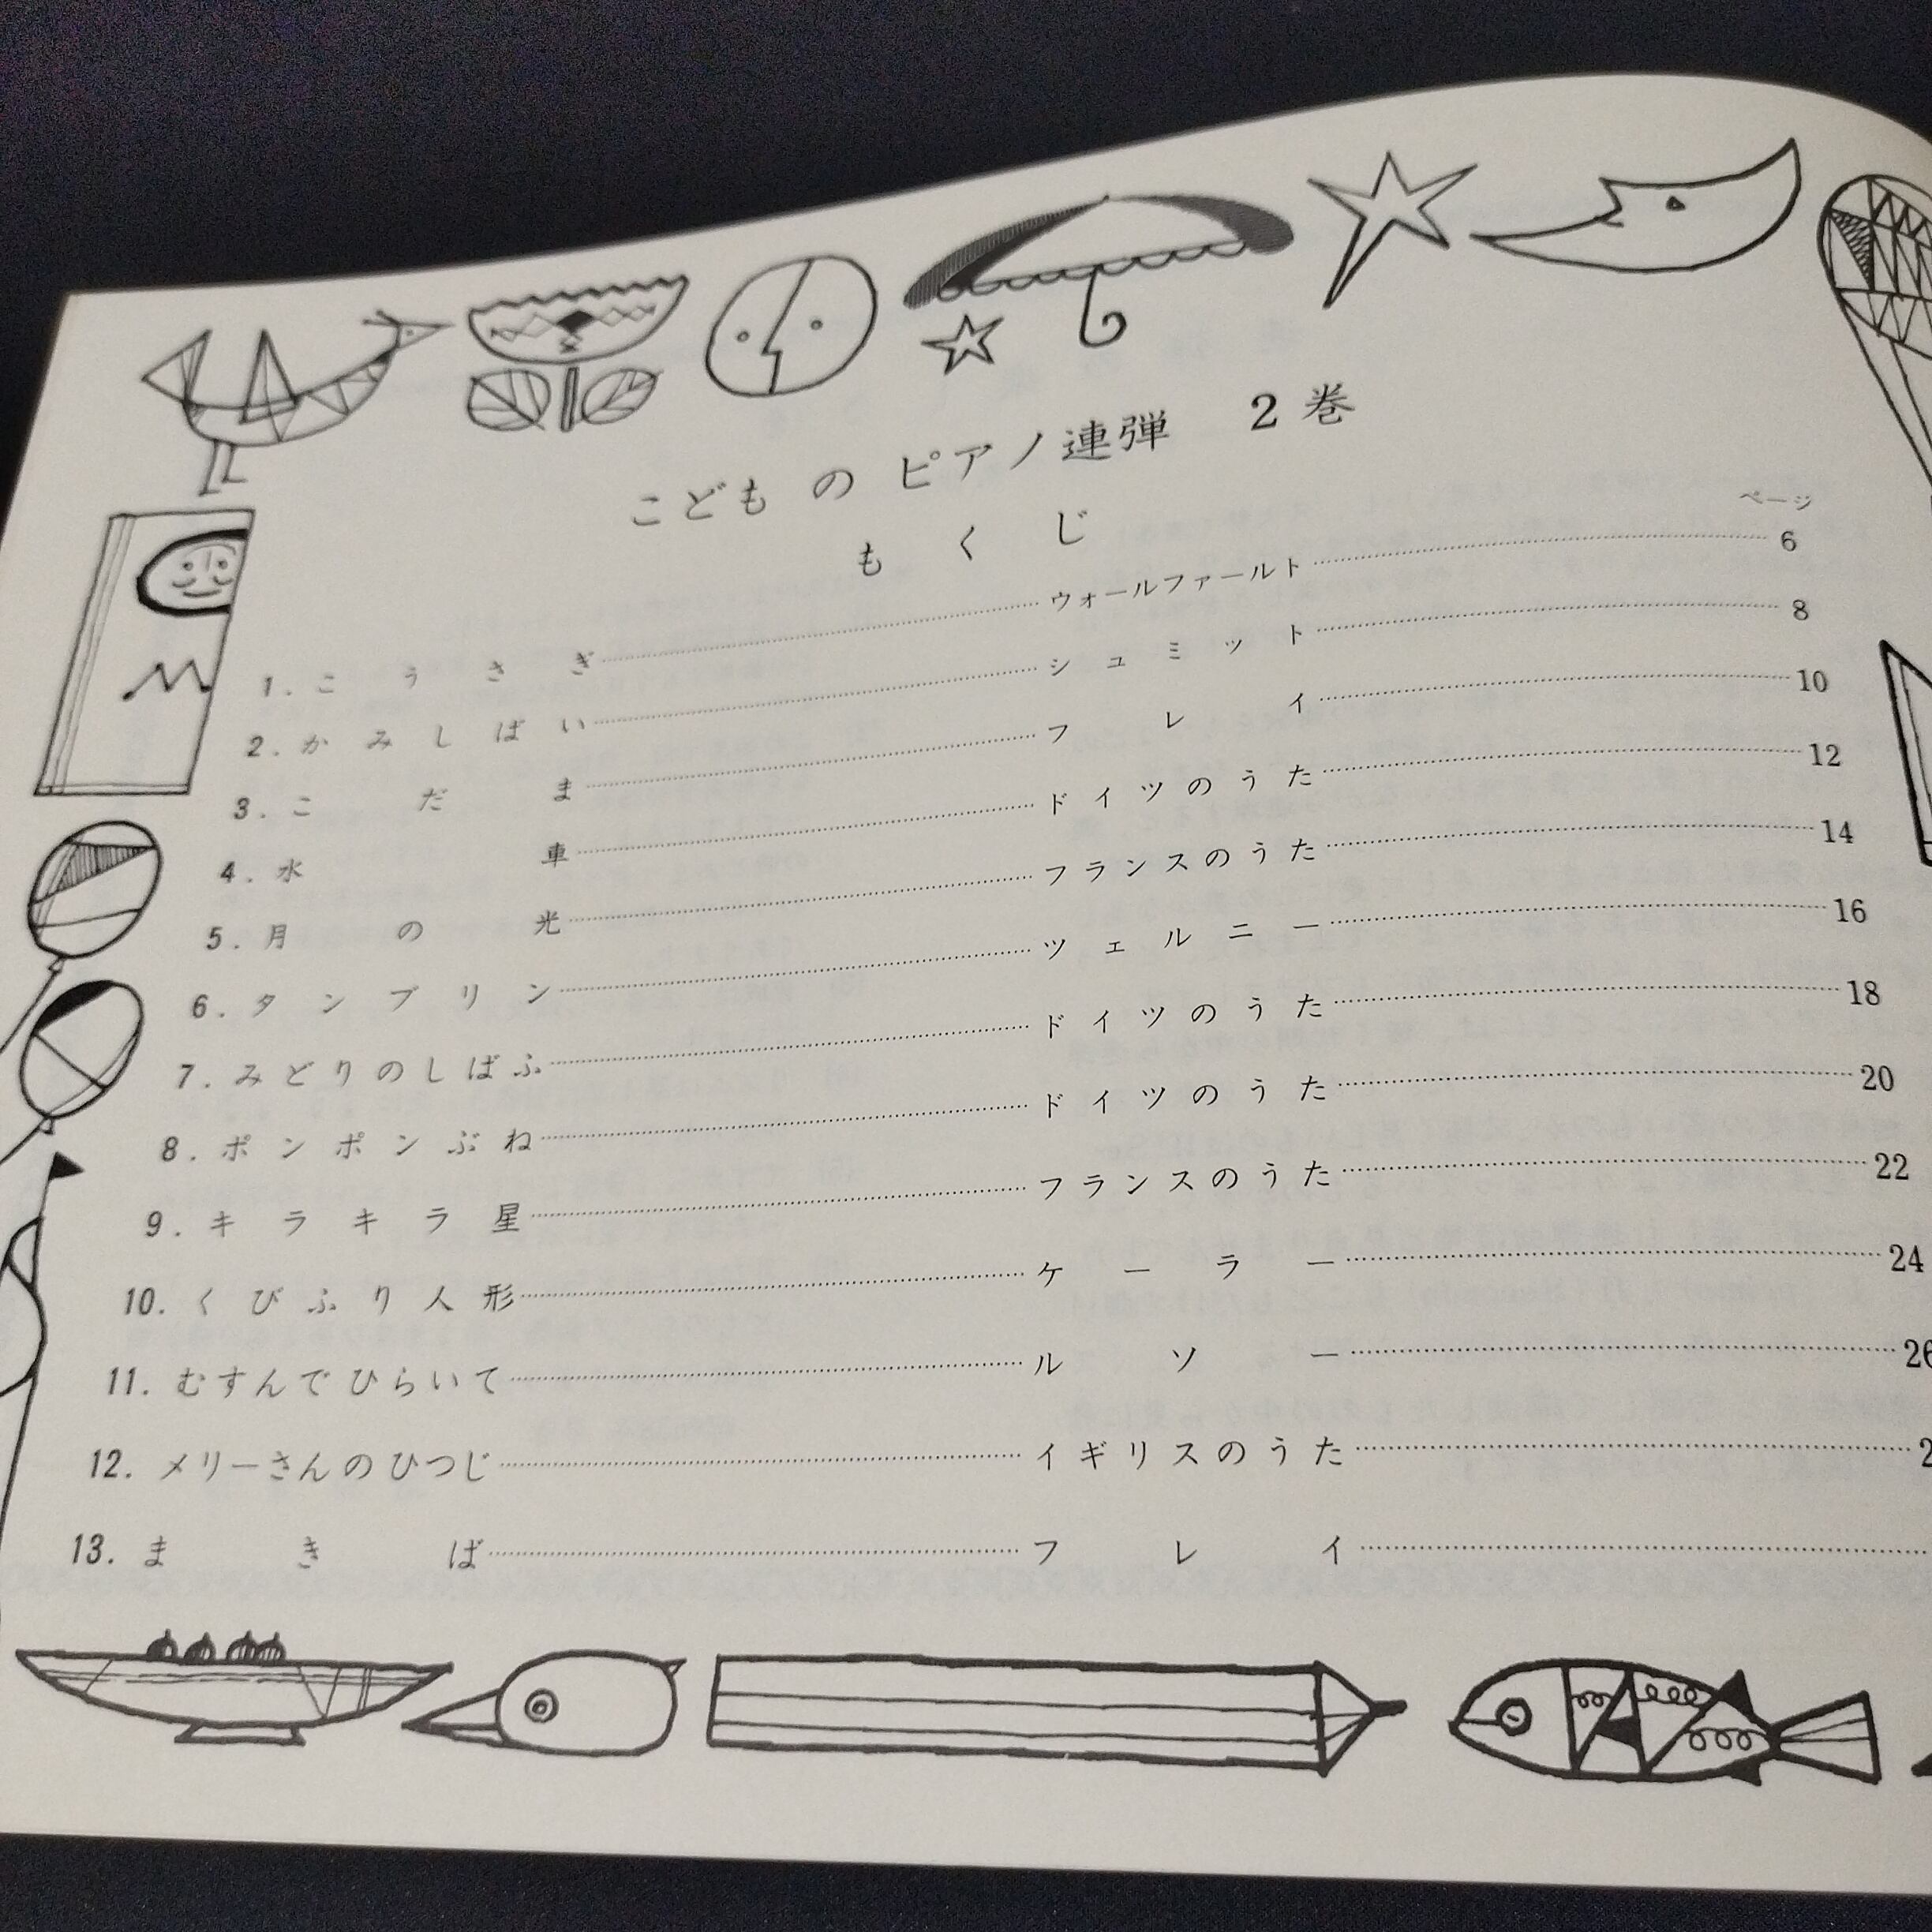 こどものピアノ連弾 2巻
もくじ
ページ
1. こうさぎ……ウォールファールト……6
2. かみしばい……シュミット……8
3. こだま……フレイ……10
4. 水車……ドイツのうた……12
5. 月の光……フランスのうた……14
6. タンブリン……ツェルニー……16
7. みどりのしばふ……ドイツのうた……18
8. ポンポンぶね……ドイツのうた……20
9. キラキラ星……フランスのうた……22
10. くびふり人形……ケーラー……24
11. むすんでひらいて……ルソー……26
12. メリーさんのひつじ……イギリスのうた……2
13. まきば……フレイ……